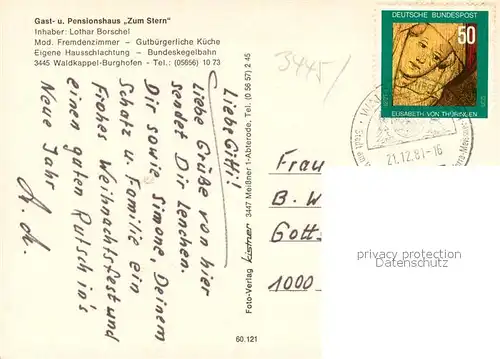 Gast- u. Pensionshaus „Zum Stern"
Inhaber: Lothar Borschel
Mod. Fremdenzimmer – Gutbürgerliche Küche
Eigene Hausschlachtung – Bundeskegelbahn
3445 Waldkappel-Burghofen - Tel.: (05656) 10 73
3445/
DEUTSCHE BUNDESPOST
50
ELISABETH VON THÜRINGEN
21.12.81-16
Liebe Gitti!
Liebe Grüße von hier
sendet Dir Lenchen.
Dir sowie, Simone, Deinem
Schatz u. Familie ein
Frohes Weihnachtsfest und
einen guten Rutsch in's
Neue Jahr
Foto-Verlag Kistner 3447 Meißner 1-Abterode, Tel. (0 56 57) 2 45
Frau
B. W
Gott
1000
60.121
privacy protection
Datenschutz